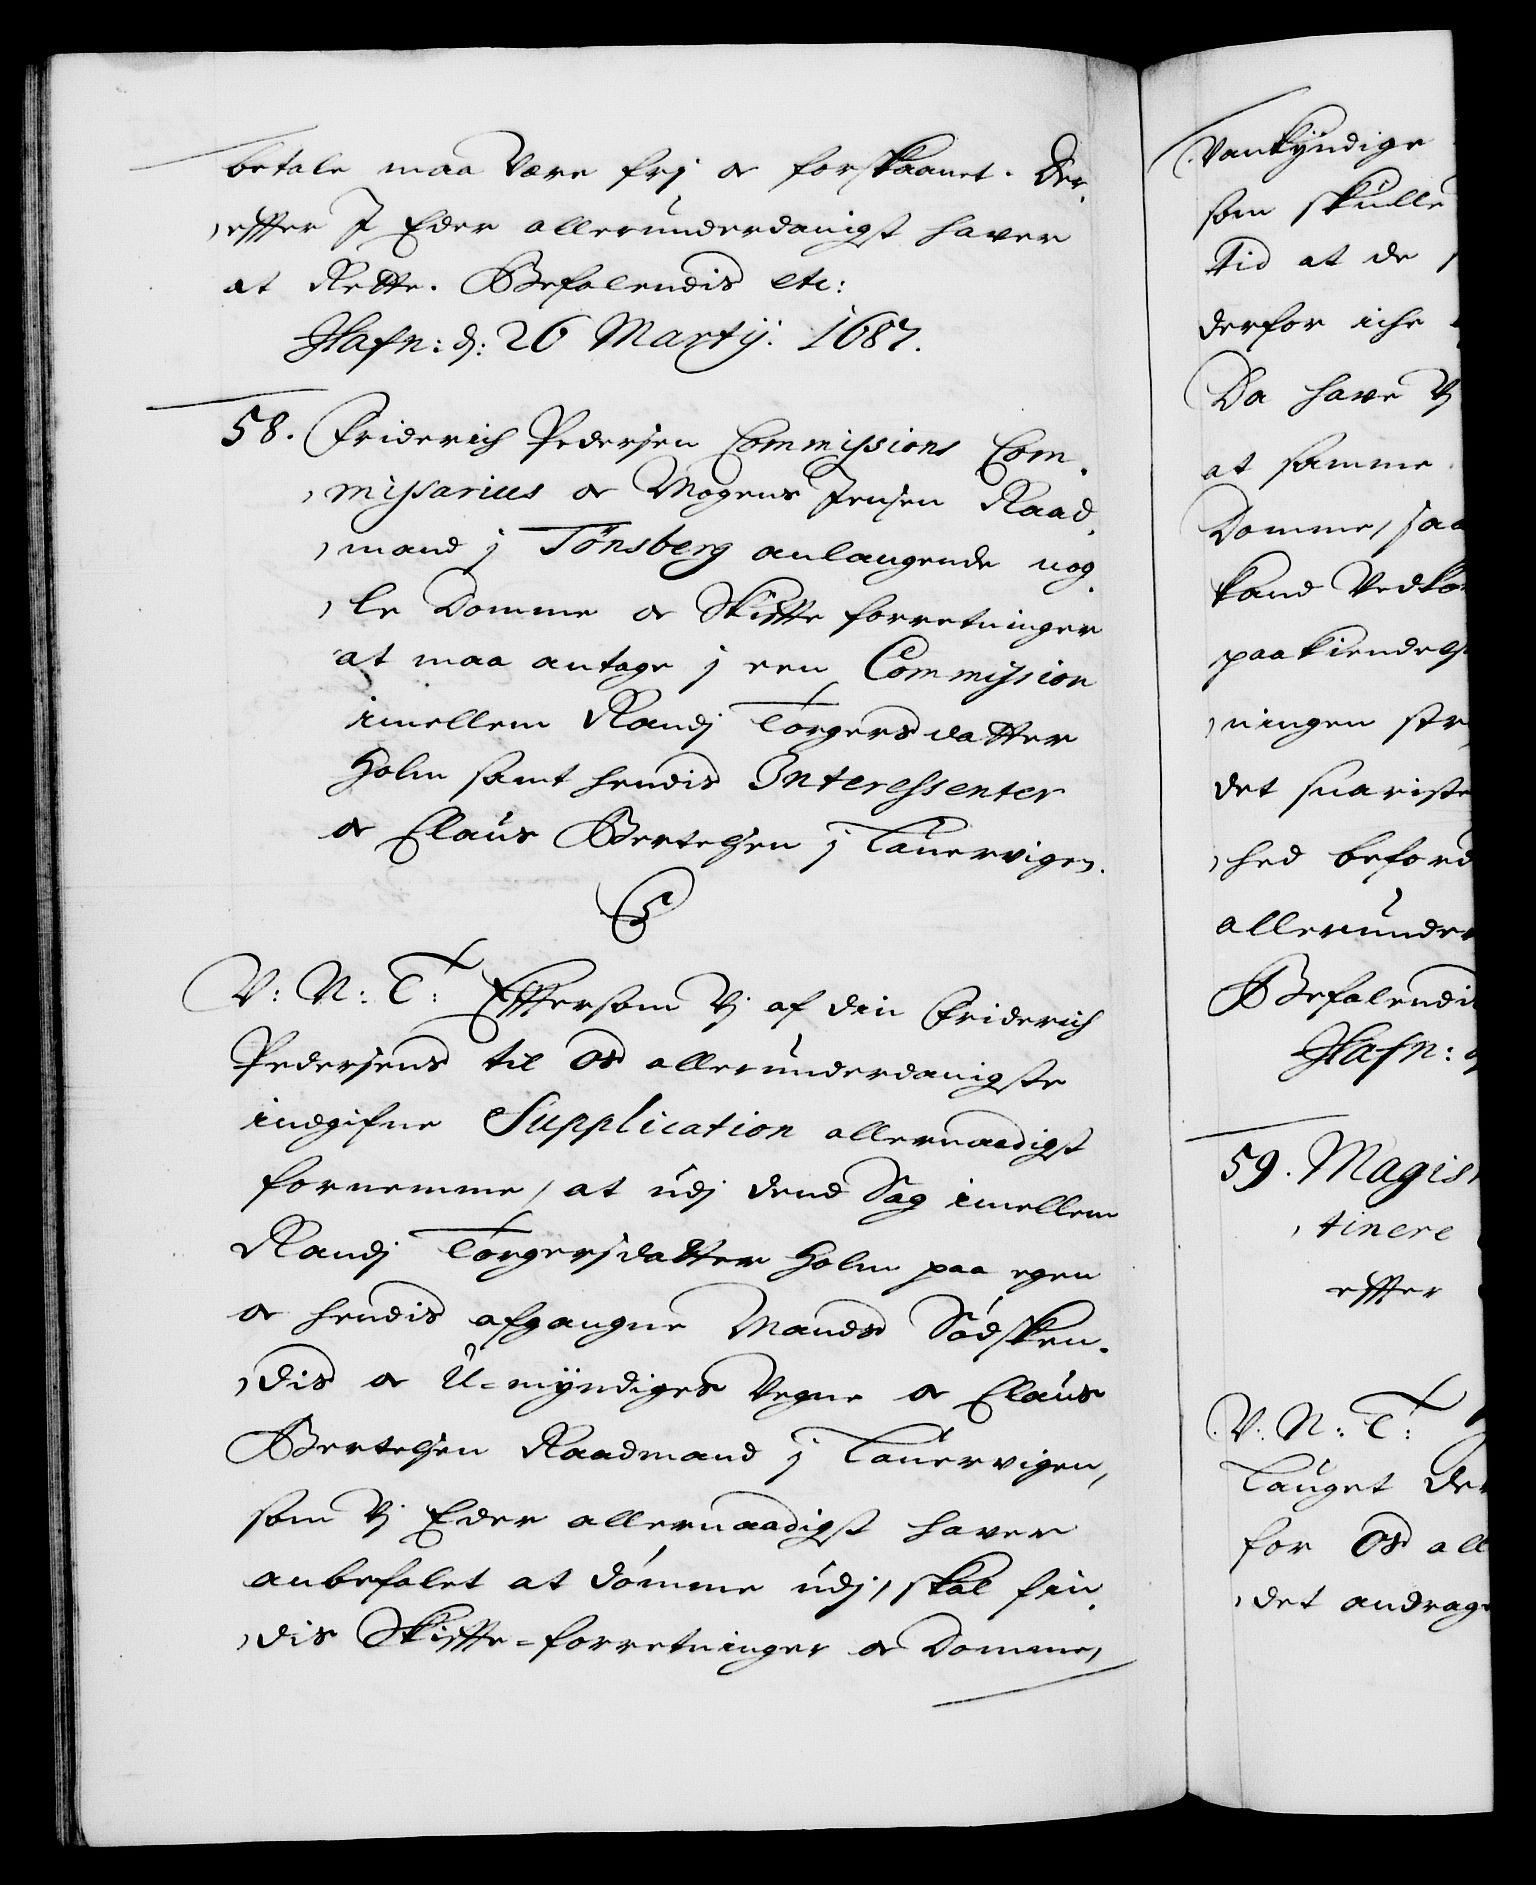 betale maa være frj oc forskaanet. Der,
,effter I Eder allerunderdanigst haver
at Rette. Befalendis etc:
Hafn: d: 26 Martij. 1687.
58. Friderich Pedersen Commissions Com,
,missarius oc Mogens Jensen Raad,
,mand j Tønsberg anlangende nog,
,le Domme oc Skiffte forretninger
at maa antage j een Commission
imellem Randj Torgersdatter
Holm samt hendis Interessenter
oc Claus Bertelsen j Laurvigen.
V: N: T: Efftersom Vj af din Friderich
Pedersens til Os allerunderdanigste
indgifne Supplication allernaadigst
fornemme, at udj dend Sag imellem
Randj Torgersdatter Holm paa egen
oc hendis afgangne Mands Sødsken,
,dis oc U=myndiges Vegne oc Claus
Bertelsen Raadmand j Laurvigen,
som Vj Eder allernaadigst haver
anbefalet at dømme udj, skal fin,
,dis Skiffte=forretninger oc Domme,
Vankyndige
som skulle
Tid at de
derfor iche
Da have Vj
at samme
Domme, saa
kand Vedko
paakiendels
,ningen str
det suariste
,hed beford
allerunder
Befalendi
Hafn:
59. Magis
,tinere
effter
V: N: T:
Lauget De
for Os all
,det andrag